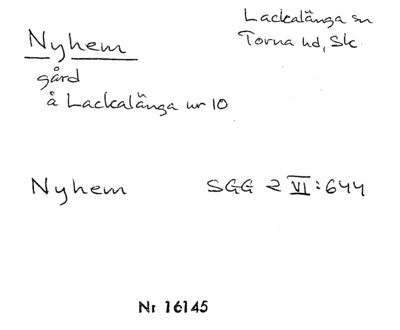 Nyhem
Lackalänga sn
Torna hd, Sk.
gård
å Lackalänga nr 10
Nyhem SGG 2 VI:644
Nr 16145